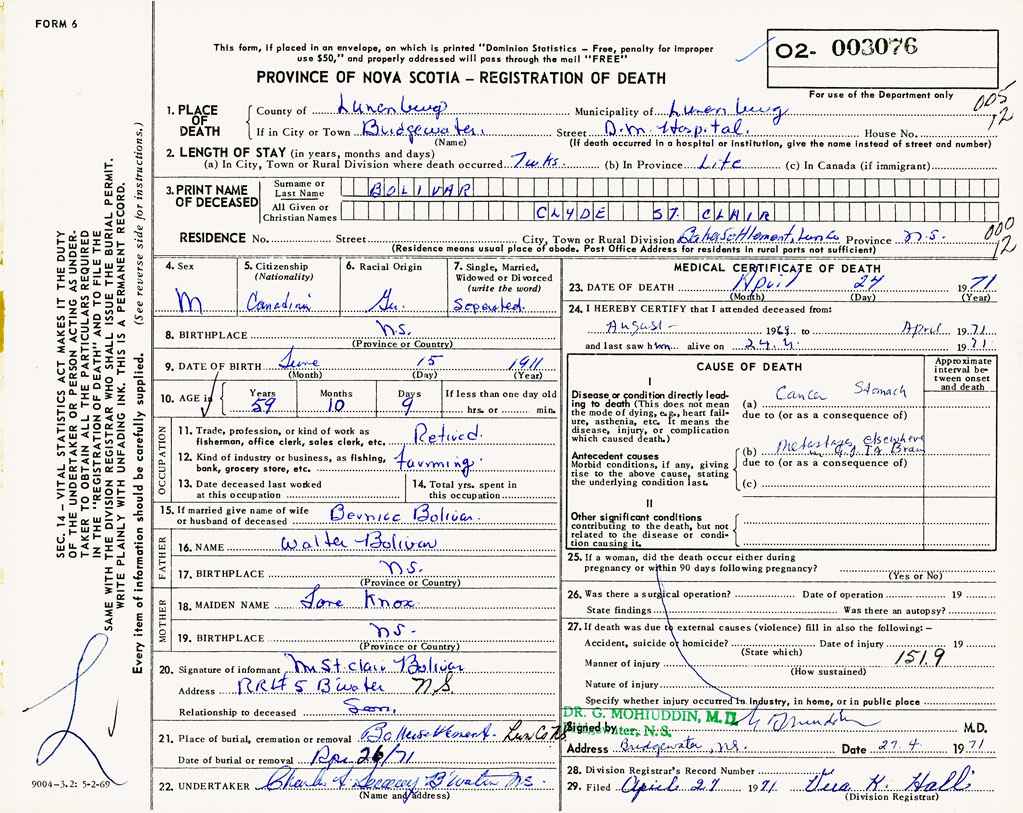 FORM 6
This form, if placed in an envelope, on which is printed "Dominion Statistics – Free, penalty for improper
use $50," and properly addressed will pass through the mail "FREE"
PROVINCE OF NOVA SCOTIA – REGISTRATION OF DEATH
02- 003076
For use of the Department only
005
12
1. PLACE OF DEATH
County of Lunenburg Municipality of Lunenburg
If in City or Town Bridgewater. Street D.M. Hospital. House No.
(Name) (If death occurred in a hospital or institution, give the name instead of street and number)
2. LENGTH OF STAY (in years, months and days)
(a) In City, Town or Rural Division where death occurred 7 wks. (b) In Province Life (c) In Canada (if immigrant)
3. PRINT NAME OF DECEASED
Surname or Last Name BOLIVAR
All Given or Christian Names CLYDE ST. CLAIR
000
12
RESIDENCE No. Street City, Town or Rural Division Province N.S.
(Residence means usual place of abode. Post Office Address for residents in rural parts not sufficient)
4. Sex M
5. Citizenship (Nationality) Canadian
6. Racial Origin Ger.
7. Single, Married, Widowed or Divorced (write the word) Seperated.
8. BIRTHPLACE N.S.
(Province or Country)
9. DATE OF BIRTH June 15 1911
(Month) (Day) (Year)
10. AGE is Years 59 Months 10 Days 9 If less than one day old hrs. or min.
OCCUPATION
11. Trade, profession, or kind of work as
fisherman, office clerk, sales clerk, etc. Retired.
12. Kind of industry or business, as fishing,
bank, grocery store, etc. Farming.
13. Date deceased last worked
at this occupation
14. Total yrs. spent in
this occupation
15. If married give name of wife
or husband of deceased Bernice Bolivar.
FATHER
16. NAME Walter Bolivar
17. BIRTHPLACE N.S.
(Province or Country)
MOTHER
18. MAIDEN NAME Knox.
19. BIRTHPLACE N.S.
(Province or Country)
20. Signature of informant M St. Clair Bolivar
Address RR# 5 B'water N.S.
Relationship to deceased Son.
21. Place of burial, cremation or removal Lun Co N.S.
Date of burial or removal Apr 26/71
22. UNDERTAKER Charles B'water N.S.
(Name and address)
MEDICAL CERTIFICATE OF DEATH
23. DATE OF DEATH April 24 1971
(Month) (Day) (Year)
24. I HEREBY CERTIFY that I attended deceased from:
August 1969 to April 1971
and last saw him alive on 24.4. 1971
CAUSE OF DEATH
Approximate interval between onset and death
I
Disease or condition directly leading to death (This does not mean
the mode of dying, e.g., heart failure, asthenia, etc. It means the
disease, injury, or complication
which caused death.)
(a) Cancer Stomach
due to (or as a consequence of)
Antecedent causes
Morbid conditions, if any, giving
rise to the above cause, stating
the underlying condition last.
(b) Metastases elsewhere
in G.I.T. & Brain
due to (or as a consequence of)
(c)
II
Other significant conditions
contributing to the death, but not
related to the disease or condition causing it.
25. If a woman, did the death occur either during
pregnancy or within 90 days following pregnancy?
(Yes or No)
26. Was there a surgical operation? Date of operation 19
State findings Was there an autopsy?
27. If death was due to external causes (violence) fill in also the following: –
Accident, suicide or homicide? Date of injury 19
(State which)
151.9
Manner of injury
(How sustained)
Nature of injury
Specify whether injury occurred in Industry, in home, or in public place
DR. G. MOHIUDDIN, M.D.
Bridgewater, N.S.
Signed by M.D.
Address Bridgewater, N.S. Date 27.4. 1971
28. Division Registrar's Record Number
29. Filed April 27 1971 Vera K. Hall
(Division Registrar)
SEC. 14 – VITAL STATISTICS ACT MAKES IT THE DUTY
OF THE UNDERTAKER OR PERSON ACTING AS UNDERTAKER TO OBTAIN ALL THE PARTICULARS REQUIRED
IN THE "REGISTRATION OF DEATH" AND TO FILE THE
SAME WITH THE DIVISION REGISTRAR WHO SHALL ISSUE THE BURIAL PERMIT.
WRITE PLAINLY WITH UNFADING INK. THIS IS A PERMANENT RECORD.
Every item of information should be carefully supplied. (See reverse side for instructions.)
9004-3.2: 5-2-69